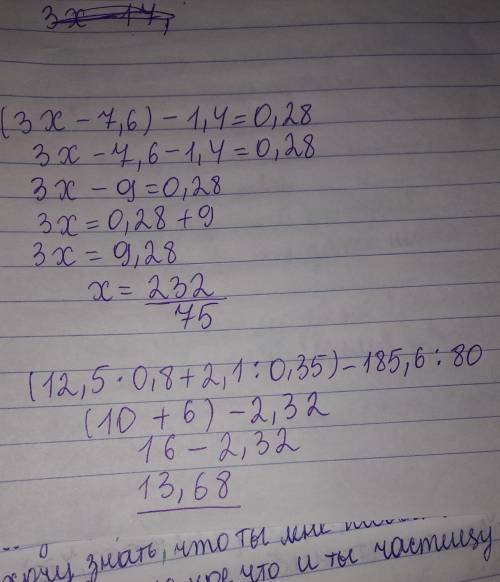 (3x - 7,6) - 1,4 = 0,28
3x - 7,6 - 1,4 = 0,28
3x - 9 = 0,28
3x = 0,28 + 9
3x = 9,28
x = 232
75
(12,5 · 0,8 + 2,1 : 0,35) - 185,6 : 80
(10 + 6) - 2,32
16 - 2,32
13,68
хочу знать, что ты мне
что и ты частицу